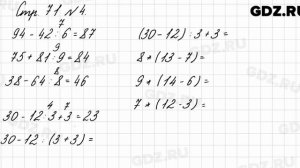 GDZ.RU
Стр. 71 №4.
7
94 - 42 : 6 = 87
9
75 + 81 : 9 = 84
8
38 - 64 : 8 = 46
4 7
30 - 12 : 3 + 3 = 23
30 - 12 : (3 + 3) =
(30 - 12) : 3 + 3 =
8 * (13 - 7) =
9 * (14 - 6) =
7 * (12 - 3) =